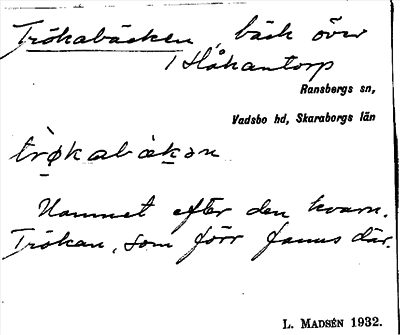 Trökabäcken, bäck över
1 Håkantorp
Ransbergs sn,
Vadsbo hd, Skaraborgs län
trøkabäkən
Namnet efter den kvarn,
Trökan, som förr fanns där.
L. MADSÉN 1932.